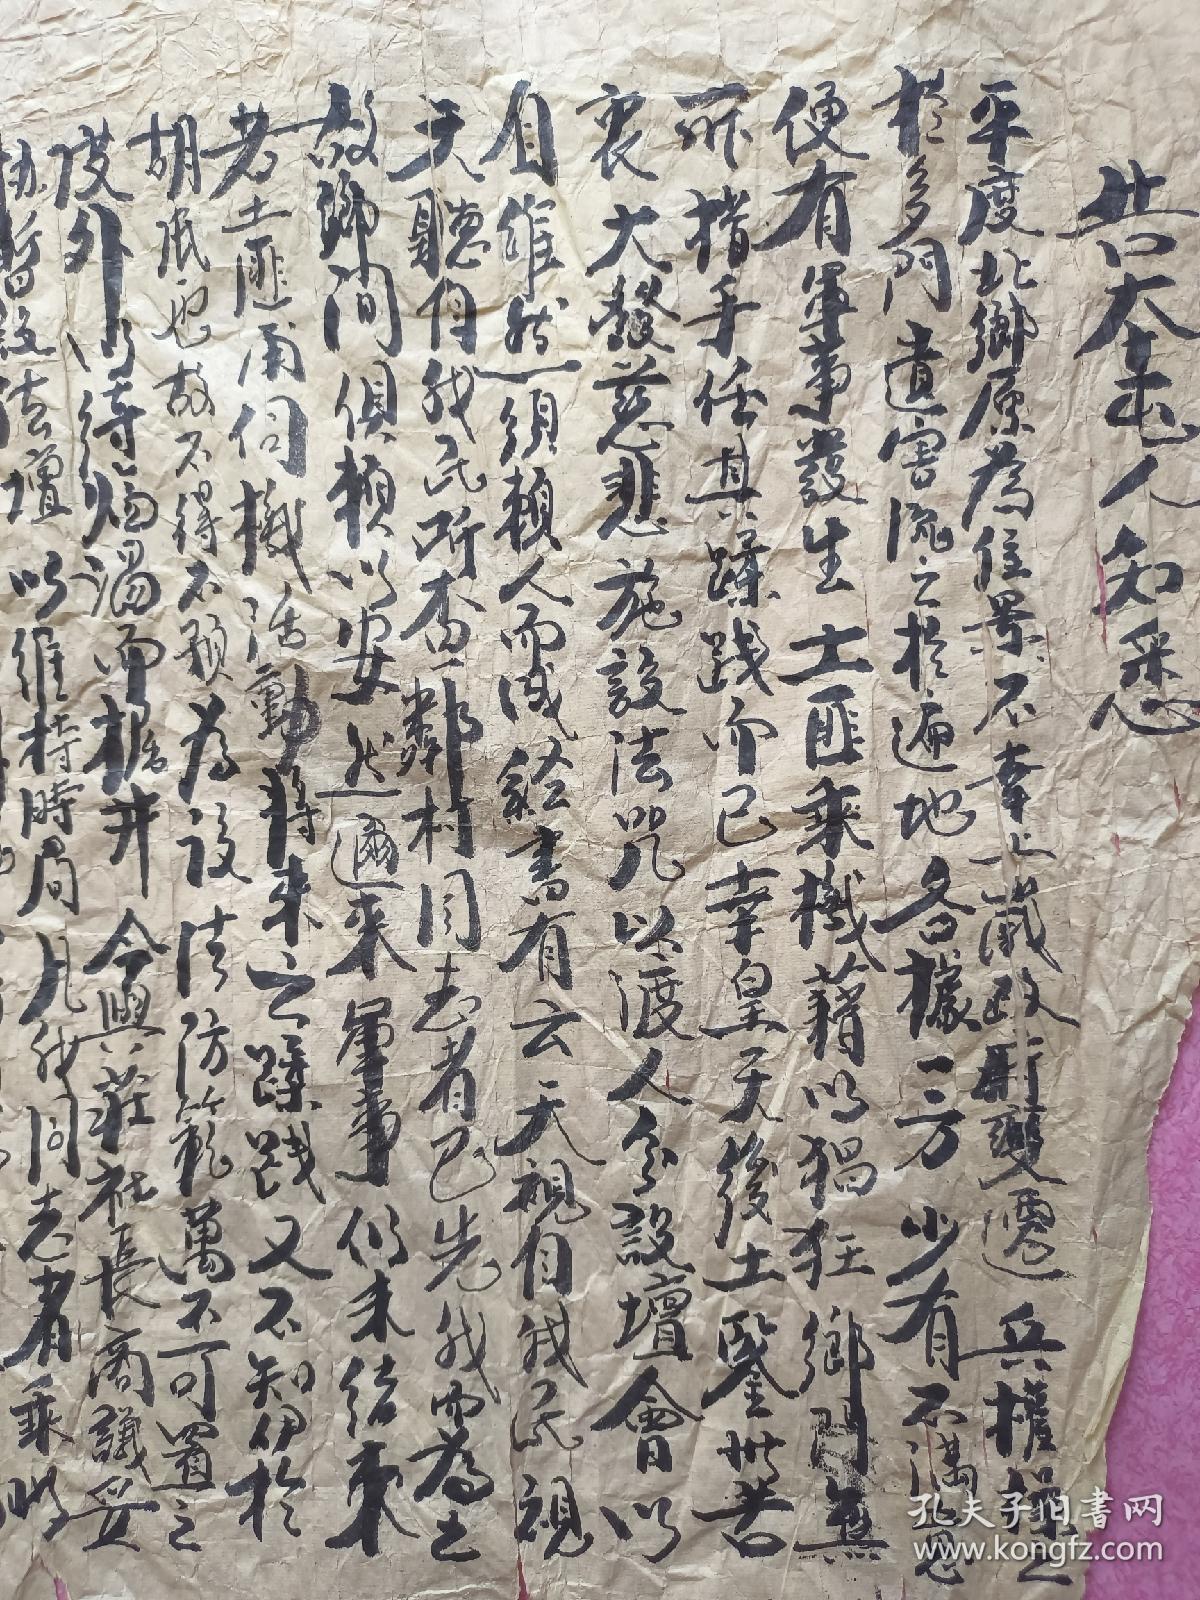 告大众人知悉
平度北鄉原為佳景不幸上歲政府變遷兵權操之
於多門遺害流之於遍地各據一方少有不滿思
便有軍事發生土匪乘機藉以猖狂鄉間無
所措手任其蹂践而已幸皇天後土鑒世苦
衷大發慈悲施設法咒以渡人分設壇會以
自維然一須賴人而成經書有云天視自我民視
天聽自我民所奋鄰村同志者已先我而為之
故鄉间俱賴以安然邇來軍事仍未結束
若土匪再伺機活動將來之蹂践又不知伊於
胡底也故不得不預為設法防範萬不可置之
度外待臨渴而掘井今與莊社長商議妥
暫設法壇以維持時局凡我同志者乘
孔夫子旧书网
www.kongfz.com